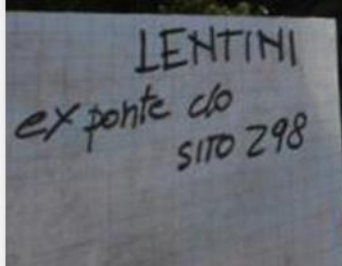 LENTINI
ex ponte c/o
SITO 298